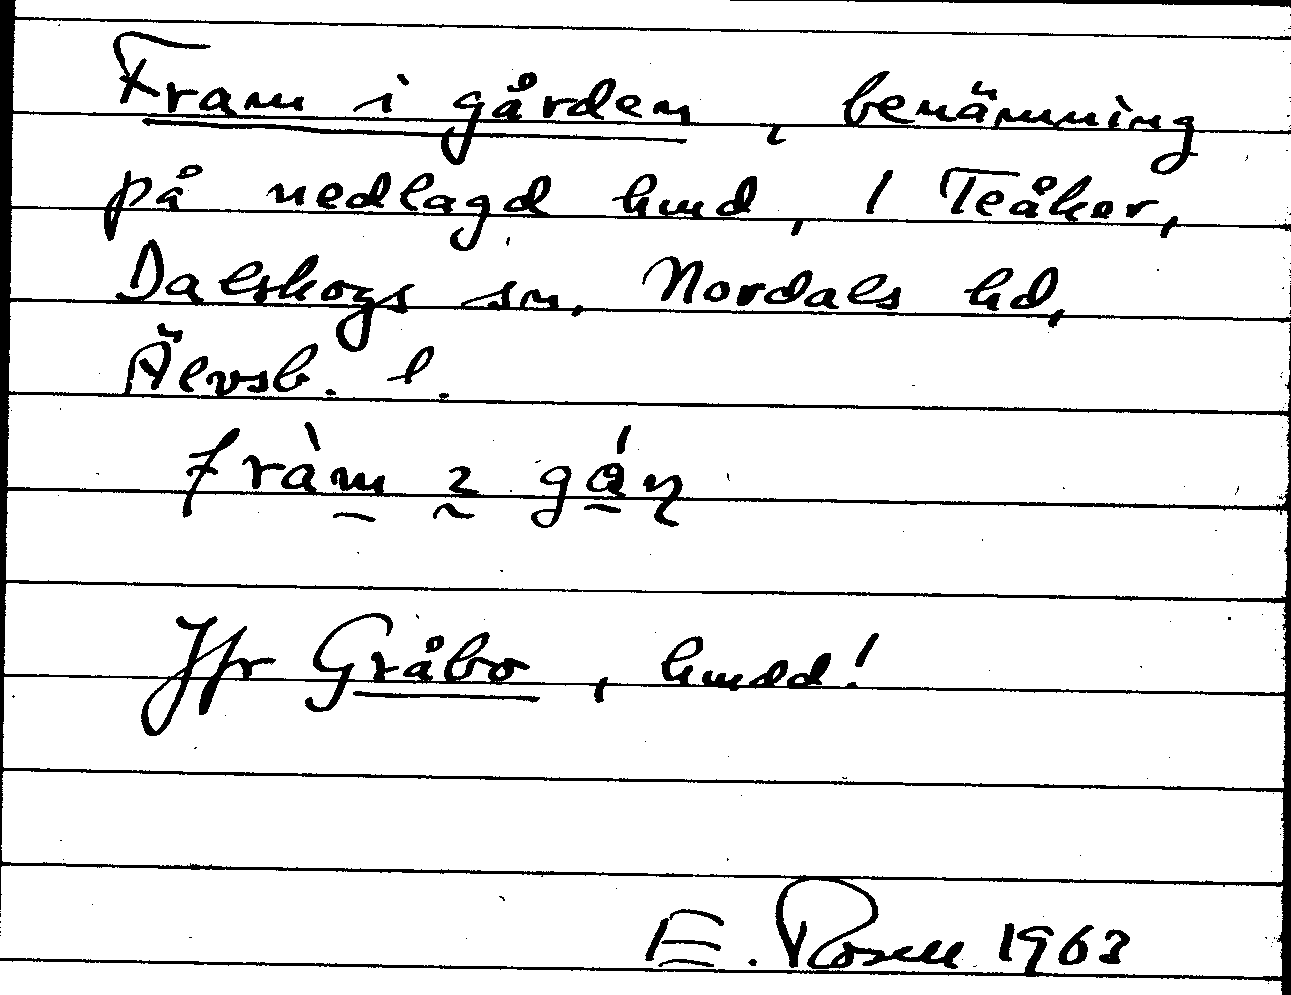 Fram i gården, benämning
på nedlagd hmd, 1 Teåker,
Dalskogs sn, Nordals hd,
Älvsb. l.
Jfr Gråbo, hmdd!
E. Rosell 1963